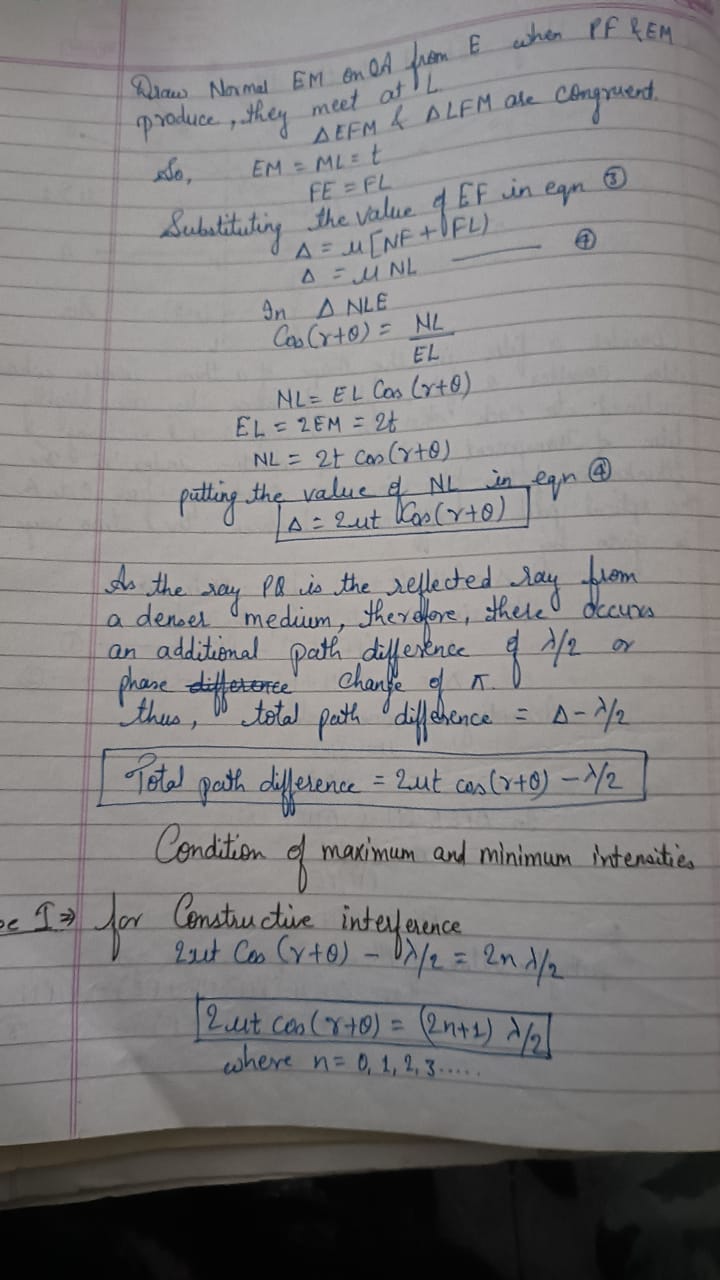 Draw Normal EM on OA from E when PF & EM
produce, they meet at L
ΔEFM & ΔLFM are congruent.
So, EM = ML = t
FE = FL
Substituting the value of EF in eqn ③
Δ = μ[NF + FL)
Δ = μ NL ——— ④
In Δ NLE
Cos(r+θ) = NL
EL
NL = EL Cos (r+θ)
EL = 2EM = 2t
NL = 2t cos(r+θ)
putting the value of NL in eqn ④
Δ = 2μt Cos(r+θ)
As the ray PQ is the reflected ray from
a denser medium, therefore, there occurs
an additional path difference of λ/2 or
phase difference change of π.
thus, total path difference = Δ - λ/2
Total path difference = 2μt cos(r+θ) - λ/2
Condition of maximum and minimum intensities
se I ⇒ for Constructive interference
2μt Cos (r+θ) - λ/2 = 2n λ/2
2μt cos(r+θ) = (2n+1) λ/2
where n = 0, 1, 2, 3.....